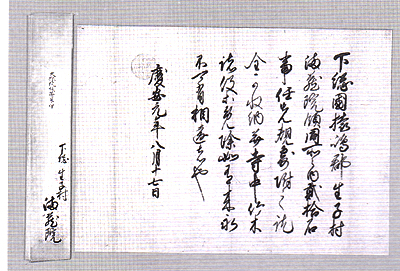 下總國猿嶋郡生子村
満蔵院領同所之内貳拾石
事任先規寄附之訖
全可收納并寺中竹木
諸役等免除如有来永
不可有相違者也
慶安元年八月十七日
下総 生子村
満蔵院